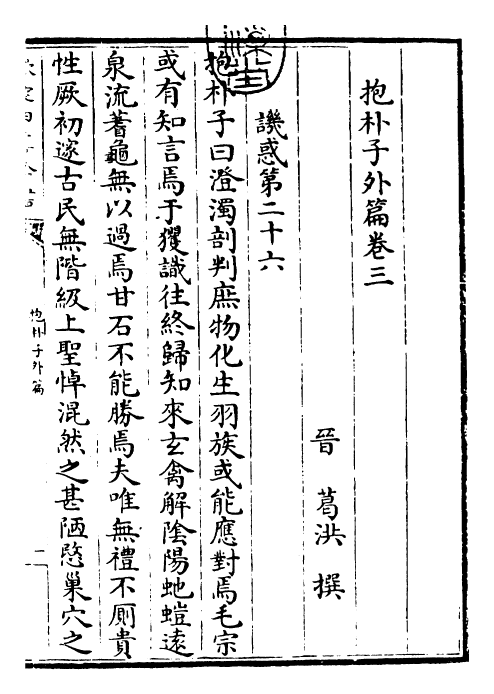 抱朴子外篇卷三
晉 葛洪 撰
譏惑第二十六
抱朴子曰澄濁剖判庶物化生羽族或能應對焉毛宗
或有知言焉于玃識往終歸知來玄禽解陰陽虵螘遠
泉流蓍龜無以過焉甘石不能勝焉夫唯無禮不厠貴
性厥初邃古民無階級上聖悼混然之甚陋愍巢穴之
抱朴子外篇
一